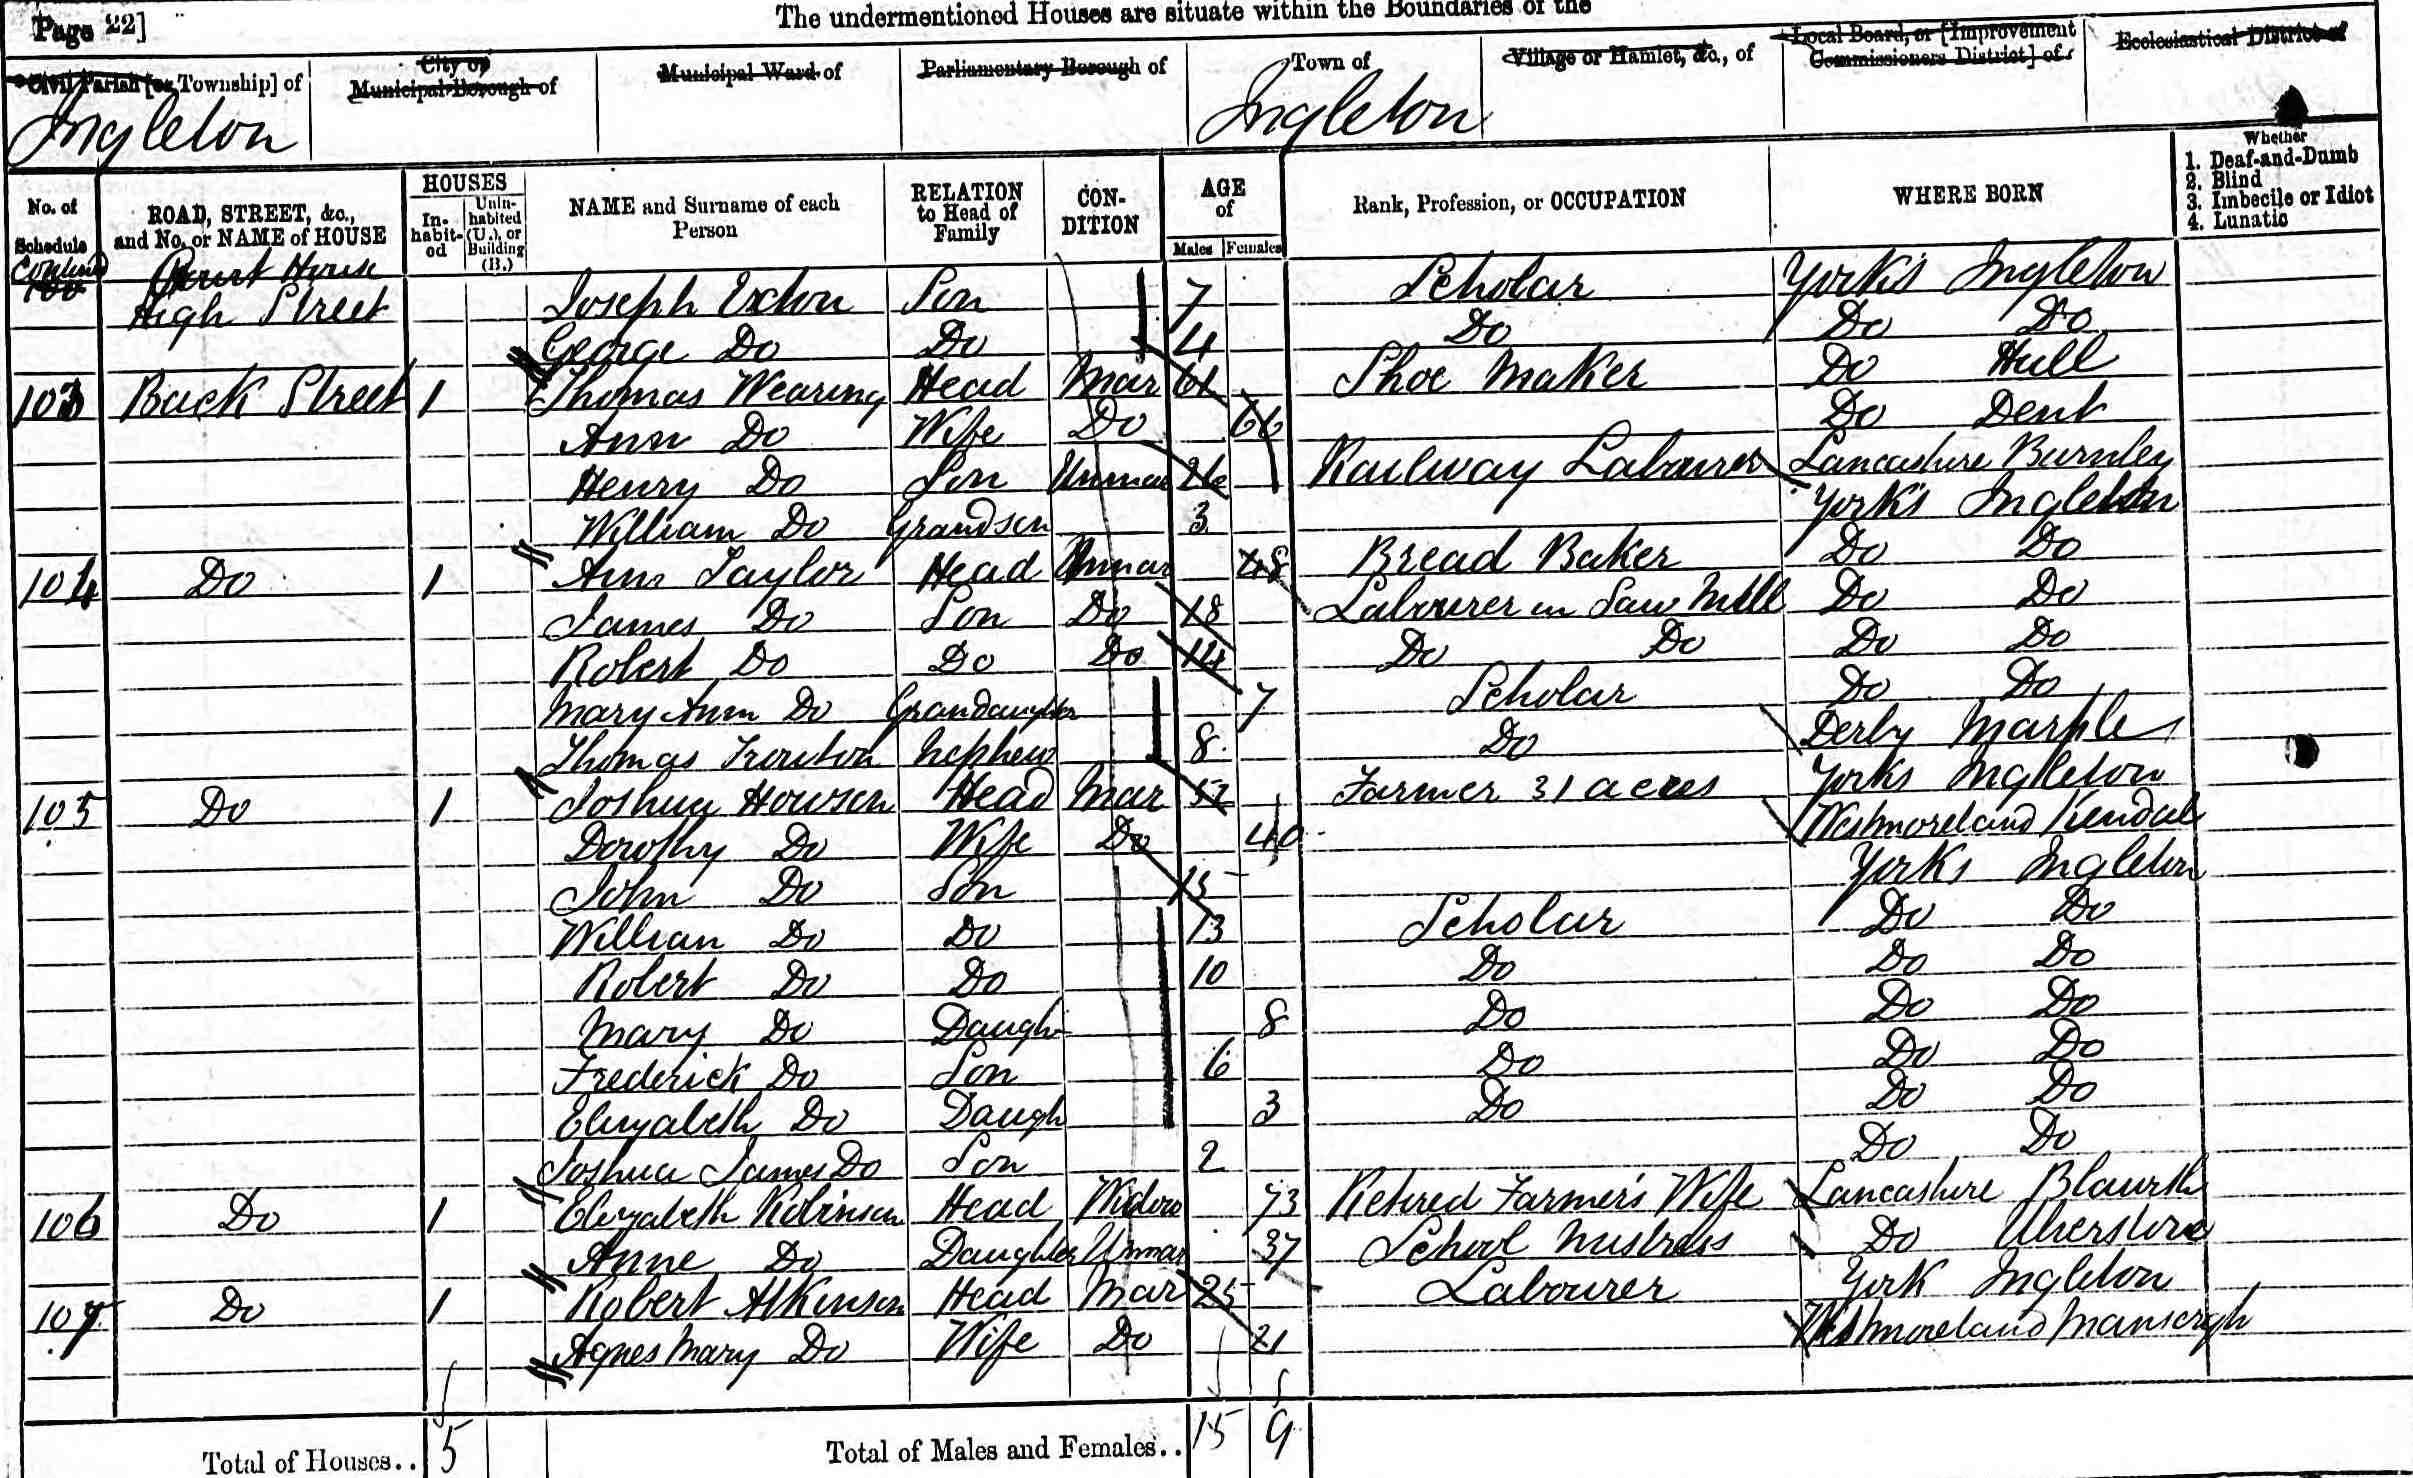 Page 22]
The undermentioned Houses are situate within the Boundaries of the
Civil Parish [or Township] of
City or Municipal Borough of
Municipal Ward of
Parliamentary Borough of
Town of
Village or Hamlet, &c., of
Local Board, or [Improvement Commissioners District] of
Ecclesiastical District of
Ingleton
Ingleton
No. of Schedule
ROAD, STREET, &c., and No. or NAME of HOUSE
HOUSES
In-habit-ed
Unin-habited (U.), or Building (B.)
NAME and Surname of each Person
RELATION to Head of Family
CON-DITION
AGE of
Males Females
Rank, Profession, or OCCUPATION
WHERE BORN
Whether
1. Deaf-and-Dumb
2. Blind
3. Imbecile or Idiot
4. Lunatic
House
High Street Joseph Exton Son 7 Scholar Yorks Ingleton
George Do Do 4 Do Do Do
103 Back Street 1 Thomas Wearing Head Mar 61 Shoe Maker Do Hull
Ann Do Wife Do 66 Do Dent
Henry Do Son Unmar 26 Railway Labourer Lancashire Burnley
William Do Grandson 3 Yorks Ingleton
104 Do 1 Ann Taylor Head Unmar 48 Bread Baker Do Do
James Do Son Do 18 Labourer in Saw Mill Do Do
Robert Do Do Do 14 Do Do Do Do
Mary Ann Do Grandaughter 7 Scholar Do Do
Thomas Nephew 8 Do Derby Marple
105 Do 1 Joshua Howson Head Mar Farmer 31 acres Yorks Ingleton
Dorothy Do Wife Do 40 Westmoreland Kendal
John Do Son 15 Yorks Ingleton
William Do Do 13 Scholar Do Do
Robert Do Do 10 Do Do Do
Mary Do Daugh 8 Do Do Do
Frederick Do Son 6 Do Do Do
Elizabeth Do Daugh 3 Do Do Do
Joshua James Do Son 2 Do Do
106 Do 1 Elizabeth Robinson Head Widow 73 Retired Farmer's Wife Lancashire
Anne Do Daughter Unmar 37 School Mistress Do
107 Do 1 Robert Atkinson Head Mar 25 Labourer York Ingleton
Agnes Mary Do Wife Do 21 Westmoreland Mansergh
Total of Houses.. 5 Total of Males and Females.. 15 9